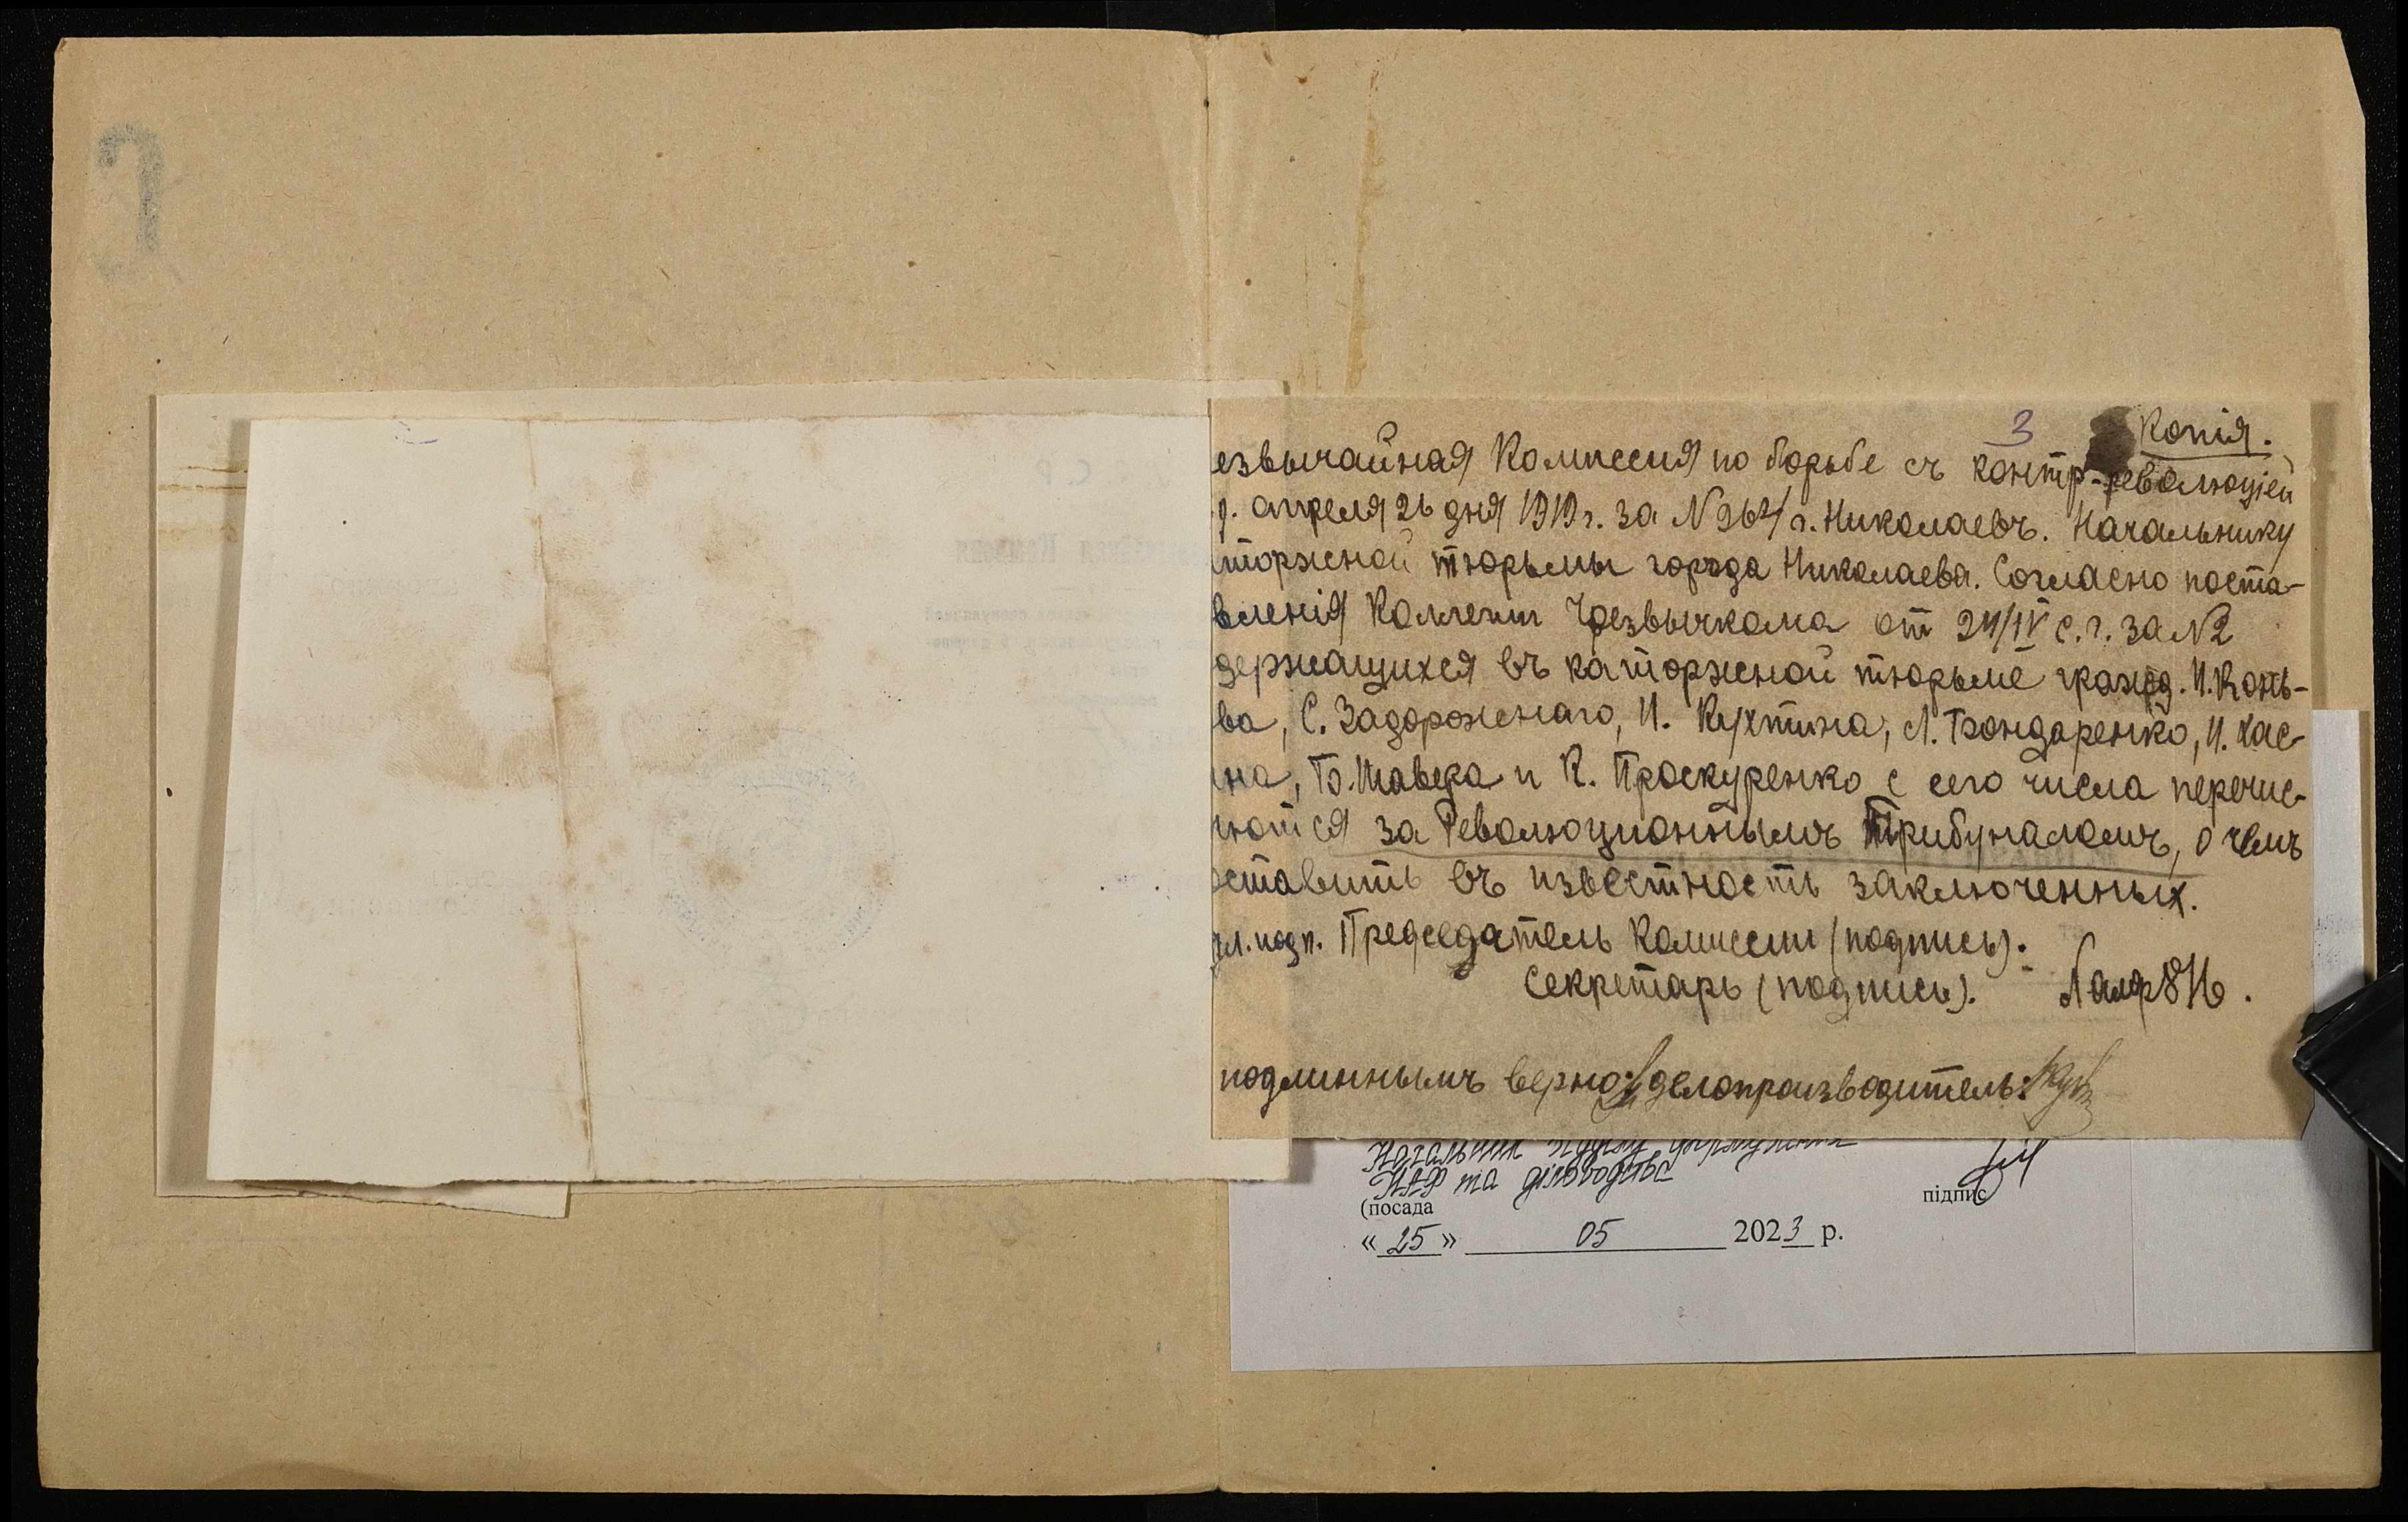 3
Копія.
езвычайная Комиссия по борьбе съ контр-революціей
апреля 26 дня 1919 г. за N 264 г. Николаевъ. Начальнику
торжной тюрьмы города Николаева. Согласно поста-
вленія Коллегии Чрезвычкома от 24/IV с.г. за N2
держащихся въ каторжной тюрьме гражд. И. Конь-
ва, С. Задорожнаго, И. Кухтина, Л. Бондаренко, И. Хас-
на, Б. Шавера и К. Проскуренко с сего числа перечис-
ются за Революционнымъ Трибуналомъ, о чемъ
оставить въ известность заключенных.
подп. Председатель Комиссии (подпись).
Секретарь (подпись).
подлиннымъ верно: делопроизводитель:
Начальник відділу формування
НАФ та діловодства
(посада
підпис
« 25 » 05 2023 р.